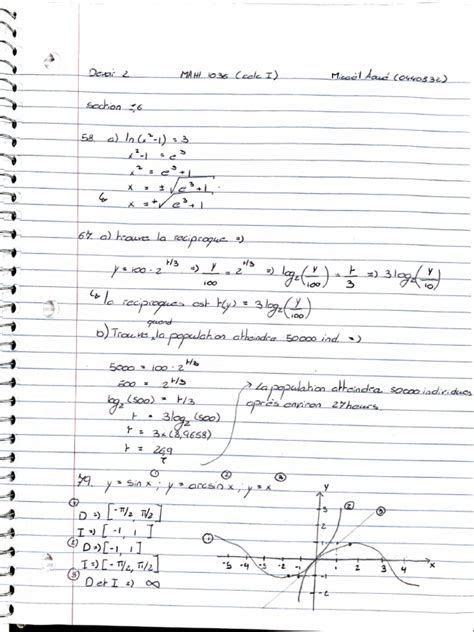 Devoir 2 MATH 1036 (calc I) (0440532)
section 1,6
58. a) ln(x²-1) = 3
x²-1 = e³
x² = e³+1
x = ±√e³+1
↳ x = ±√e³+1
67. a) trouvez la réciproque =>
y = 100 · 2^(t/3) => y/100 = 2^(t/3) => log₂(y/100) = t/3 => 3log₂(y/10)
↳ la réciproques est t(y) = 3log₂(y/100)
quand
b) Trouvez la population atteindra 50000 ind. =>
5000 = 100 · 2^(t/3)
500 = 2^(t/3)
log₂(500) = t/3
t = 3log₂(500)
t = 3×(8,9658)
t = 26,9
→ La population atteindra 50000 individues
après environ 27 heurs.
① ② ③
79. y = sin x ; y = arcsin x ; y = x
①
D => [-π/2, π/2]
I => [-1, 1]
②
D => [-1, 1]
I => [-π/2, π/2]
③
D et I => ∞
y
② ③
①
3
2
1
-5 -4 -3 -2 1 2 3 4 x
-1
-2